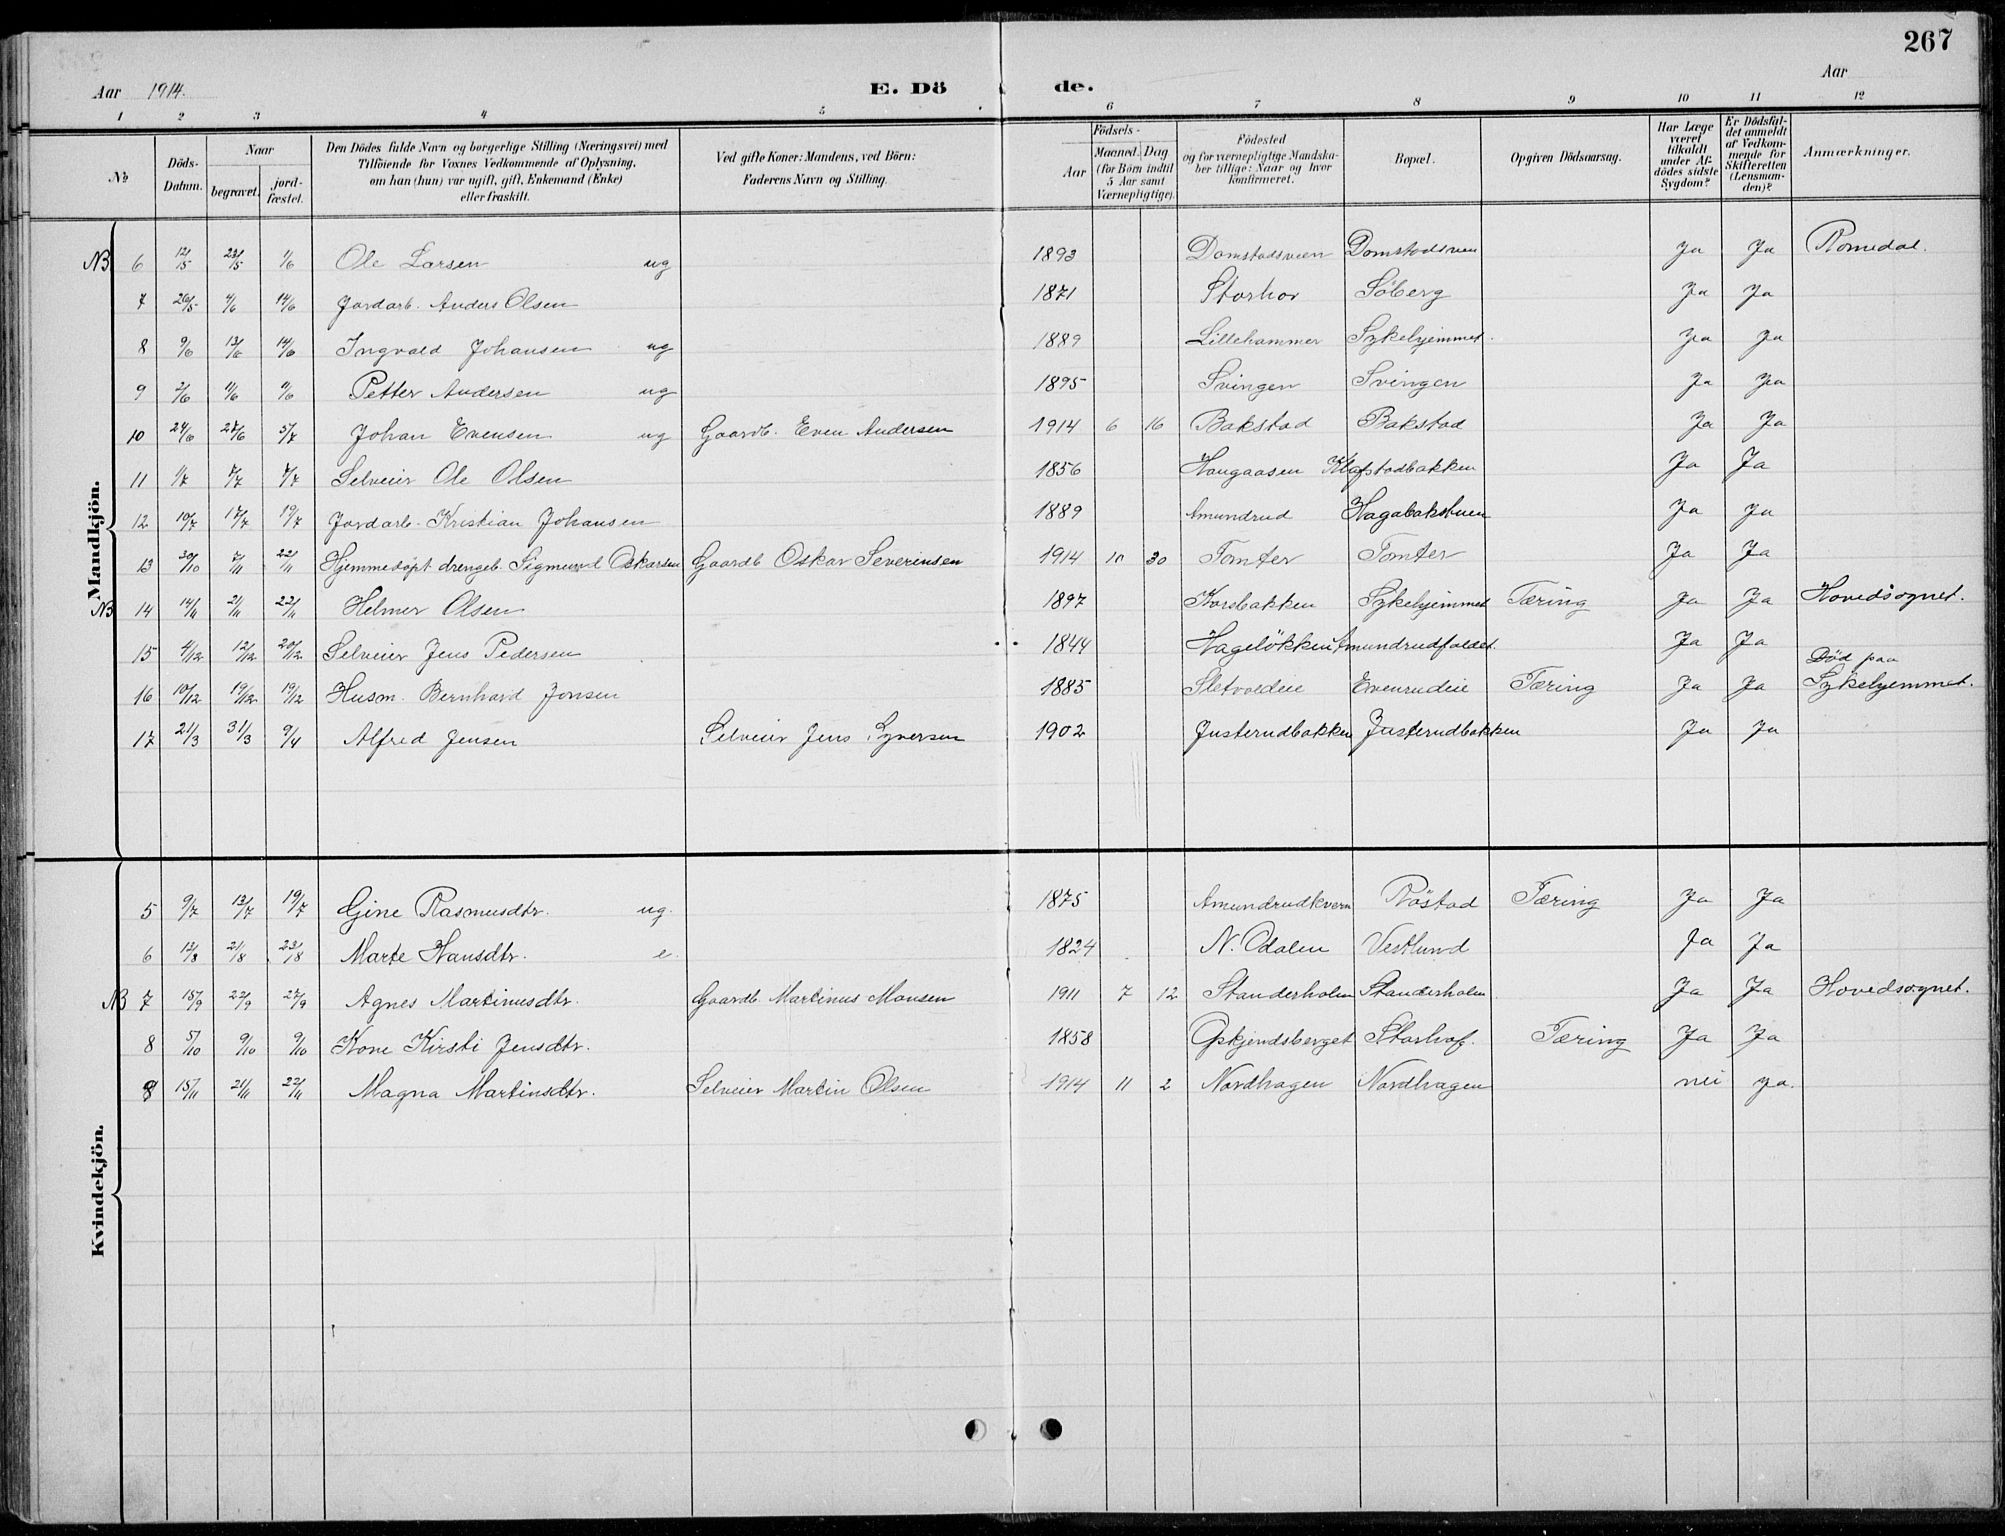 267
Aar 1914. E. Dö de. Aar
1 2 3 4 5 6 7 8 9 10 11 12
No
Döds-Datum.
Naar
begravet.
jord-fæstet.
Den Dödes fulde Navn og borgerlige Stilling (Næringsvei) med
Tilföiende for Voxnes Vedkommende af Oplysning,
om han (hun) var ugift, gift, Enkemand (Enke)
eller fraskilt.
Ved gifte Koner: Mandens, ved Börn:
Faderens Navn og Stilling.
Födsels-
Aar
Maaned. Dag
(for Börn indtil
5 Aar samt
Værnepligtige).
Födested
og for værnepligtige Mandska-
ber tillige: Naar og hvor
Konfirmeret.
Bopæl.
Opgiven Dödsaarsag.
Har Læge
været
tilkaldt
under Af-
dödes sidste
Sygdom?
Er Dödsfal-
det anmeldt
af Vedkom-
mende for
Skifteretten
(Lensman-
den)?
Anmærkninger.
Mandkjön.
NB 6 12/5 23/5 1/6 Ole Larsen ug 1893 Domstadsveen Domstadsveen Ja Ja Romedal.
7 26/5 4/6 14/6 Jordarb. Anders Olsen 1871 Storhov Söberg Ja Ja
8 9/6 13/6 14/6 Ingvald Johansen ug 1889 Lillehammer Sykehjemmet. Ja Ja
9 2/6 9/6 Petter Andersen ug 1895 Svingen Svingen Ja Ja
10 24/6 27/6 5/7 Johan Evensen ug Gaardb. Even Andersen 1914 6 16 Bakstad Bakstad Ja Ja
11 1/7 7/7 7/7 Selveier Ole Olsen 1856 Haugaasen Klafstadbakken Ja Ja
12 10/7 17/7 19/7 Jordarb. Kristian Johansen 1889 Amundrud Hagabakstuen Ja Ja
13 30/10 7/11 22/11 Hjemmedöpt drengeb. Sigmund Oskarsen Gaardb Oskar Severinsen 1914 10 30 Tomter Tomter Ja Ja
NB 14 14/11 21/11 22/11 Helmer Olsen 1897 Korsbakken Sykehjemmet Tæring Ja Ja Hovedsognet.
15 4/12 12/12 20/12 Selveier Jens Pedersen 1844 Hageløkken Amundrudfaldet. Ja Ja
16 10/12 19/12 19/12 Husm. Bernhard Jonsen 1885 Sletvoldeie Evenrudeie Tæring Ja Ja Död paa Sykehjemmet.
17 21/3 31/3 9/4 Alfred Jensen Selveier Jens Syversen 1902 Justerudbakken Justerudbakken Ja Ja
Kvindekjön.
5 9/7 13/7 19/7 Gine Rasmusdtr. ug. 1875 Amundrudkvern Röstad Tæring Ja Ja
6 12/8 21/8 23/8 Marte Hansdtr. e. 1824 N. Odalen Vestlund Ja Ja
NB 7 15/9 22/9 27/9 Agnes Martinusdtr. Gaardb. Martinus Monsen 1911 7 12 Standerholm Standerholm Ja Ja Hovedsognet.
8 5/10 9/10 9/10 Kone Kirsti Jensdtr. 1858 Opkjendsberget Storhof. Tæring Ja Ja
9 15/11 21/11 22/11 Magna Martinsdtr. Selveier Martin Olsen 1914 11 2 Nordhagen Nordhagen nei ja.